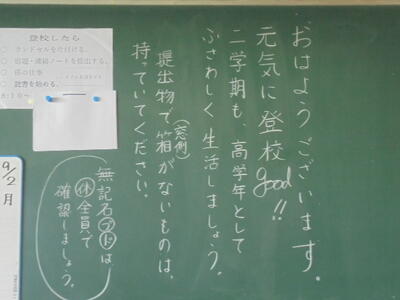 おはようございます。
元気に登校good!!
二学期も、高学年として
ふさわしく生活しましょう。
提出物で箱がないものは、
(窓側)
持っていてください。
無記名は
休全員で
確認しましょう。
登校したら
○ ランドセルを片付ける。
○ 宿題・連絡ノートを提出する。
○ 係の仕事
○ 読書を始める。
8:10〜
9/2
月